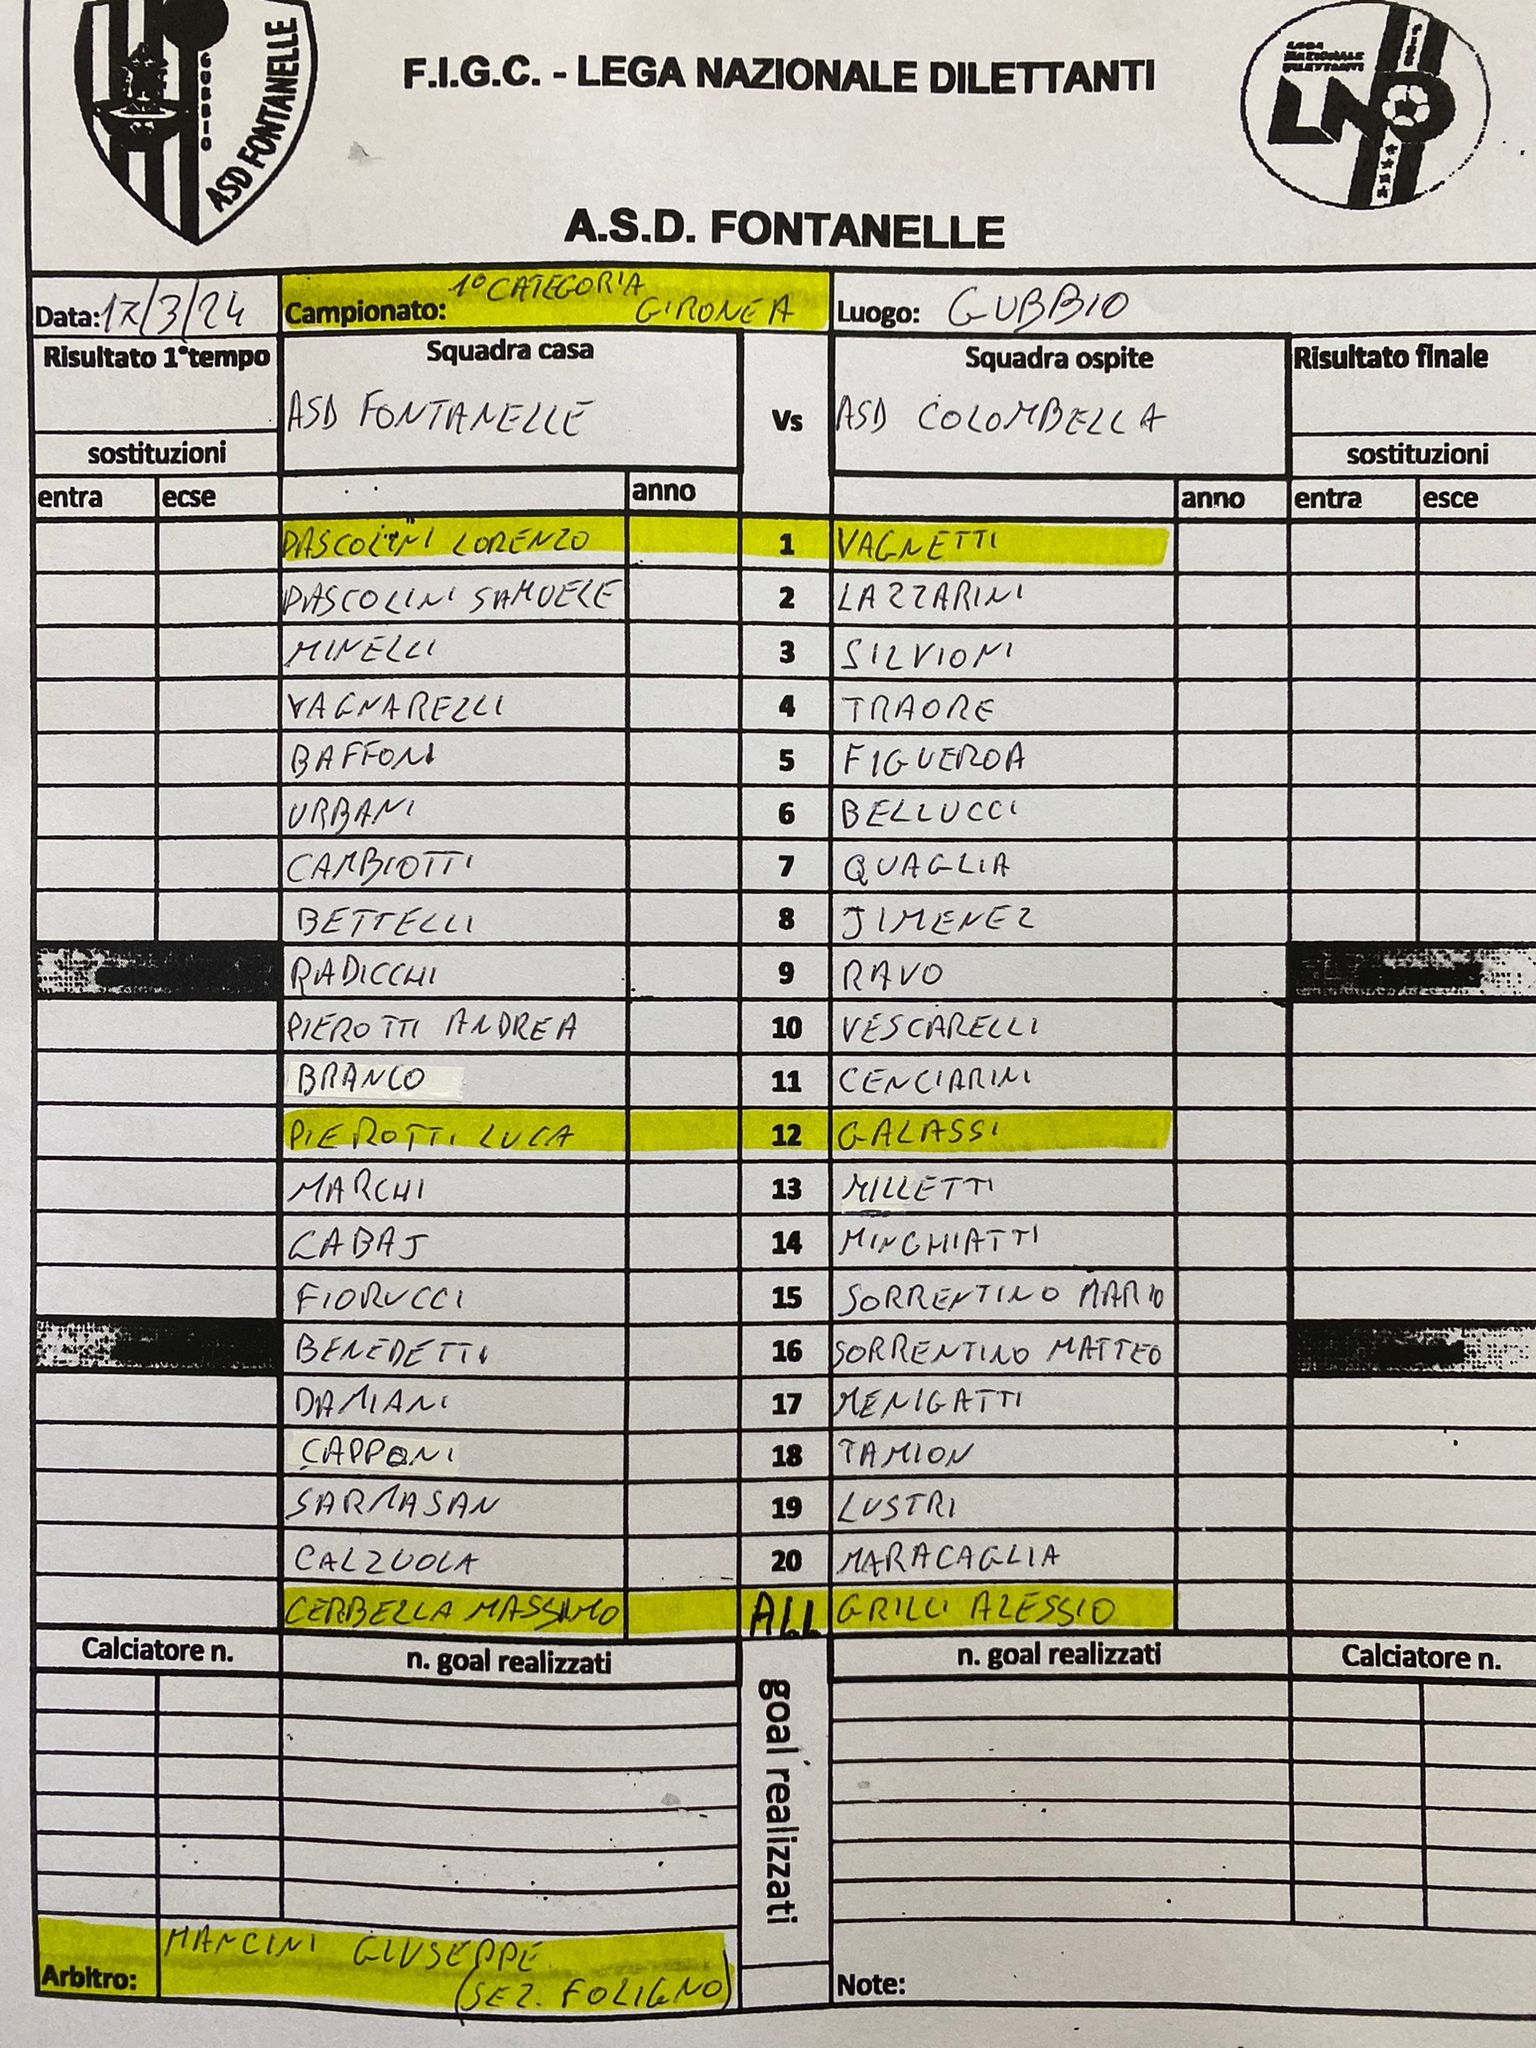 GUBBIO
ASD FONTANELLE
F.I.G.C. - LEGA NAZIONALE DILETTANTI
LEGA NAZIONALE DILETTANTI
LND
A.S.D. FONTANELLE
Data: 17/3/24 Campionato: 1° CATEGORIA GIRONE A Luogo: GUBBIO
Risultato 1°tempo Squadra casa Vs Squadra ospite Risultato finale
ASD FONTANELLE ASD COLOMBELLA
sostituzioni sostituzioni
entra ecse anno anno entra esce
PASCOLINI LORENZO 1 VAGNETTI
PASCOLINI SAMUELE 2 LAZZARINI
MINELLI 3 SILVIONI
VAGNARELLI 4 TRAORE
BAFFONI 5 FIGUEROA
URBANI 6 BELLUCCI
CAMBIOTTI 7 QUAGLIA
BETTELLI 8 JIMENEZ
RADICCHI 9 RAVO
PIEROTTI ANDREA 10 VESCARELLI
BRANCO 11 CENCIARINI
PIEROTTI LUCA 12 GALASSI
MARCHI 13 MILLETTI
GABAJ 14 MINGHIATTI
FIORUCCI 15 SORRENTINO MARIO
BENEDETTI 16 SORRENTINO MATTEO
DAMIANI 17 MENIGATTI
CAPPONI 18 TAMION
SARMASAN 19 LUSTRI
CALZUOLA 20 MARACAGLIA
CERBELLA MASSIMO ALL GRILLI ALESSIO
Calciatore n. n. goal realizzati goal realizzati n. goal realizzati Calciatore n.
Arbitro: MANCINI GIUSEPPE
(SEZ. FOLIGNO)
Note: